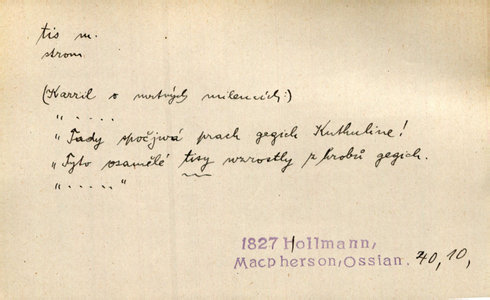 tis m.
strom
(Karril o mrtvých milencích:)
" . . . .
"Tady spočjwá prach gegich Kuthuline!
"Tyto osamělé tisy wzrostly z hrobů gegich.
" . . . . . "
1827 Hollmann,
Macpherson, Ossian. 40, 10,